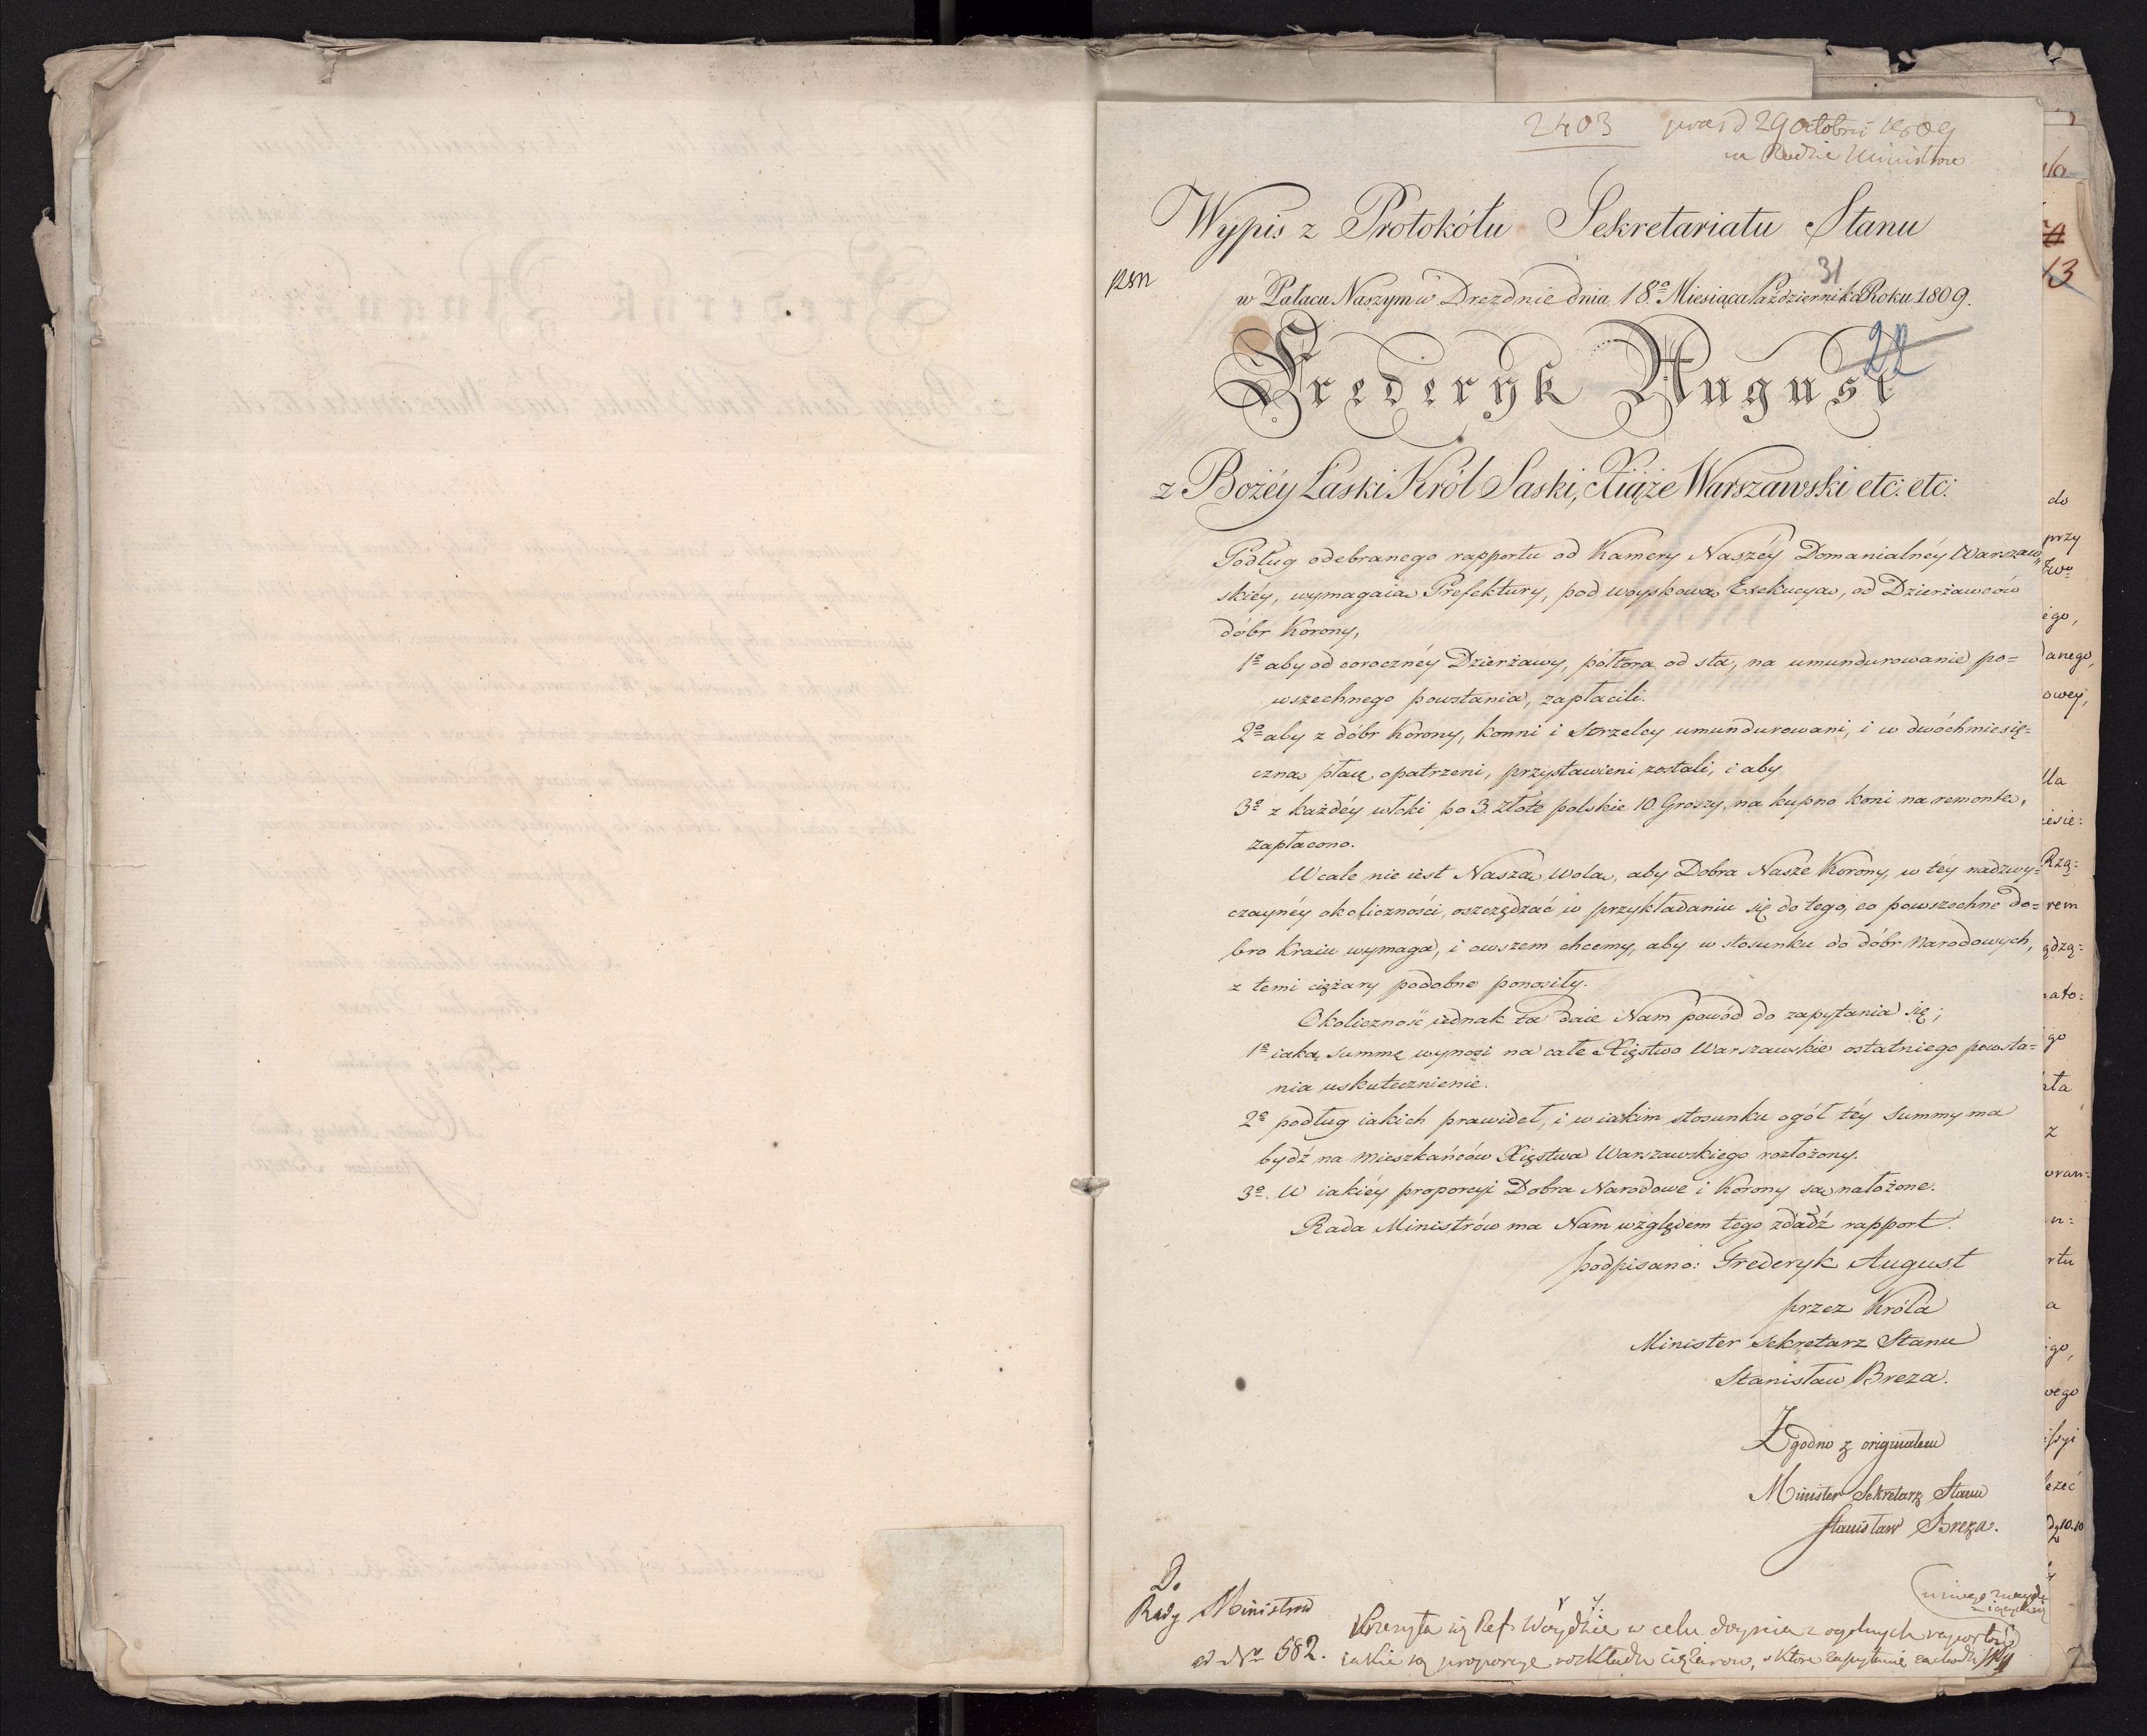 2403 29 octobris 1809
w Radzie Ministrow
Wypis z Protokółu Sekretariatu Stanu
31
w Pałacu Naszym w Dreznie dnia 18º Miesiąca Października Roku 1809.
22
Frederyk August
z Bożéy Łaski Król Saski, Xiąże Warszawski etc: etc:
Podług odebranego rapportu od Kamery Naszéy Domanialnéy Warszaw„
skiéy, wymagaią Prefektury, pod woyskową Exekucyą, od Dzierżawców
dóbr Korony,
1º aby od coroczнéy Dzierżawy, półtora od sta, na umundurowanie po=
wszechnego powstania, zapłacili.
2º aby z dóbr Korony, konni i Strzelcy umundurowani, i w dwóchmiesię=
czną płacę opatrzeni, przystawieni zostali, i aby
3º z każdéy włóki po 3. Złote polskie 10. Groszy, na kupno koni na remontę,
zapłacono.
Wcale nie iest Naszą Wolą, aby Dobra Nasze Korony, w téy nadzwy=
czaynéy okoliczności, oszczędzać w przykładaniu się do tego, co powszechne do=
bro Kraiu wymaga, i owszem chcemy, aby w stosunku do dóbr Narodowych,
z temi ciężary podobne ponosiły.
Okoliczność iednak ta daie Nam powód do zapytania się;
1º iaką summę wynosi na całe Xięstwo Warszawskie ostatniego powsta=
nia uskutecznienie.
2º podług iakich prawideł, i w iakim stosunku ogół téy Summy ma
bydź na Mieszkańców Xięstwa Warszawskiego rozłożony.
3º. W iakiéy proporcyi Dobra Narodowe i Korony są nałożone.
Rada Ministrów ma Nam względem tego zdadź rapport.
podpisano: Frederyk August
przez Króla
Minister Sekretarz Stanu
Stanisław Breza.
Zgodno z originałem
Minister Sekretarz Stanu
Stanisław Breza.
Do
Rady Ministrow
ad Nro 582.
w celu z ogolnych raportow
iakie są proporcye rozkładu ciężarow, o które zapytanie zachodzi
do
przy
ego,
danego,
owey,
dla
iesię:
Rzą:
rem
ądzą:
nato:
go
ata
z
n:
rtu
a
go,
wego
ssyi
eżeć